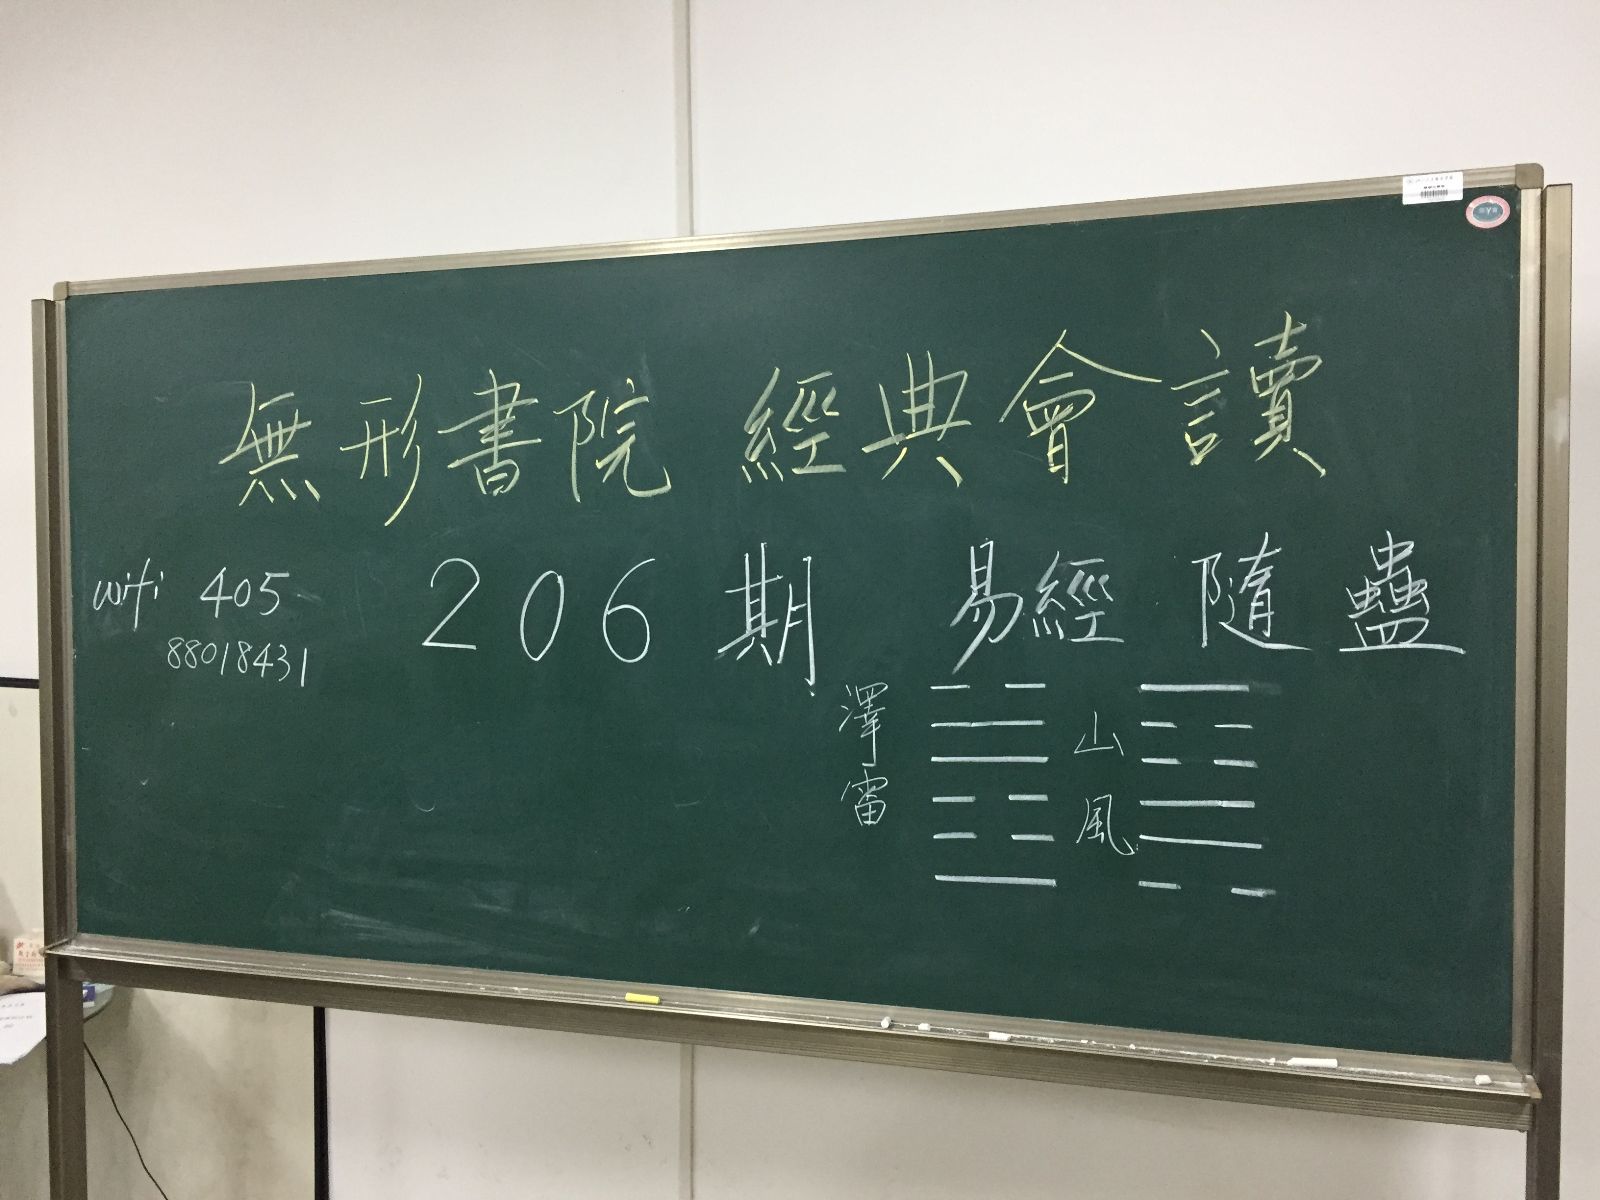 無形書院 經典會讀
wifi 405
88018431
206期
易經 隨 蠱
澤雷
山風